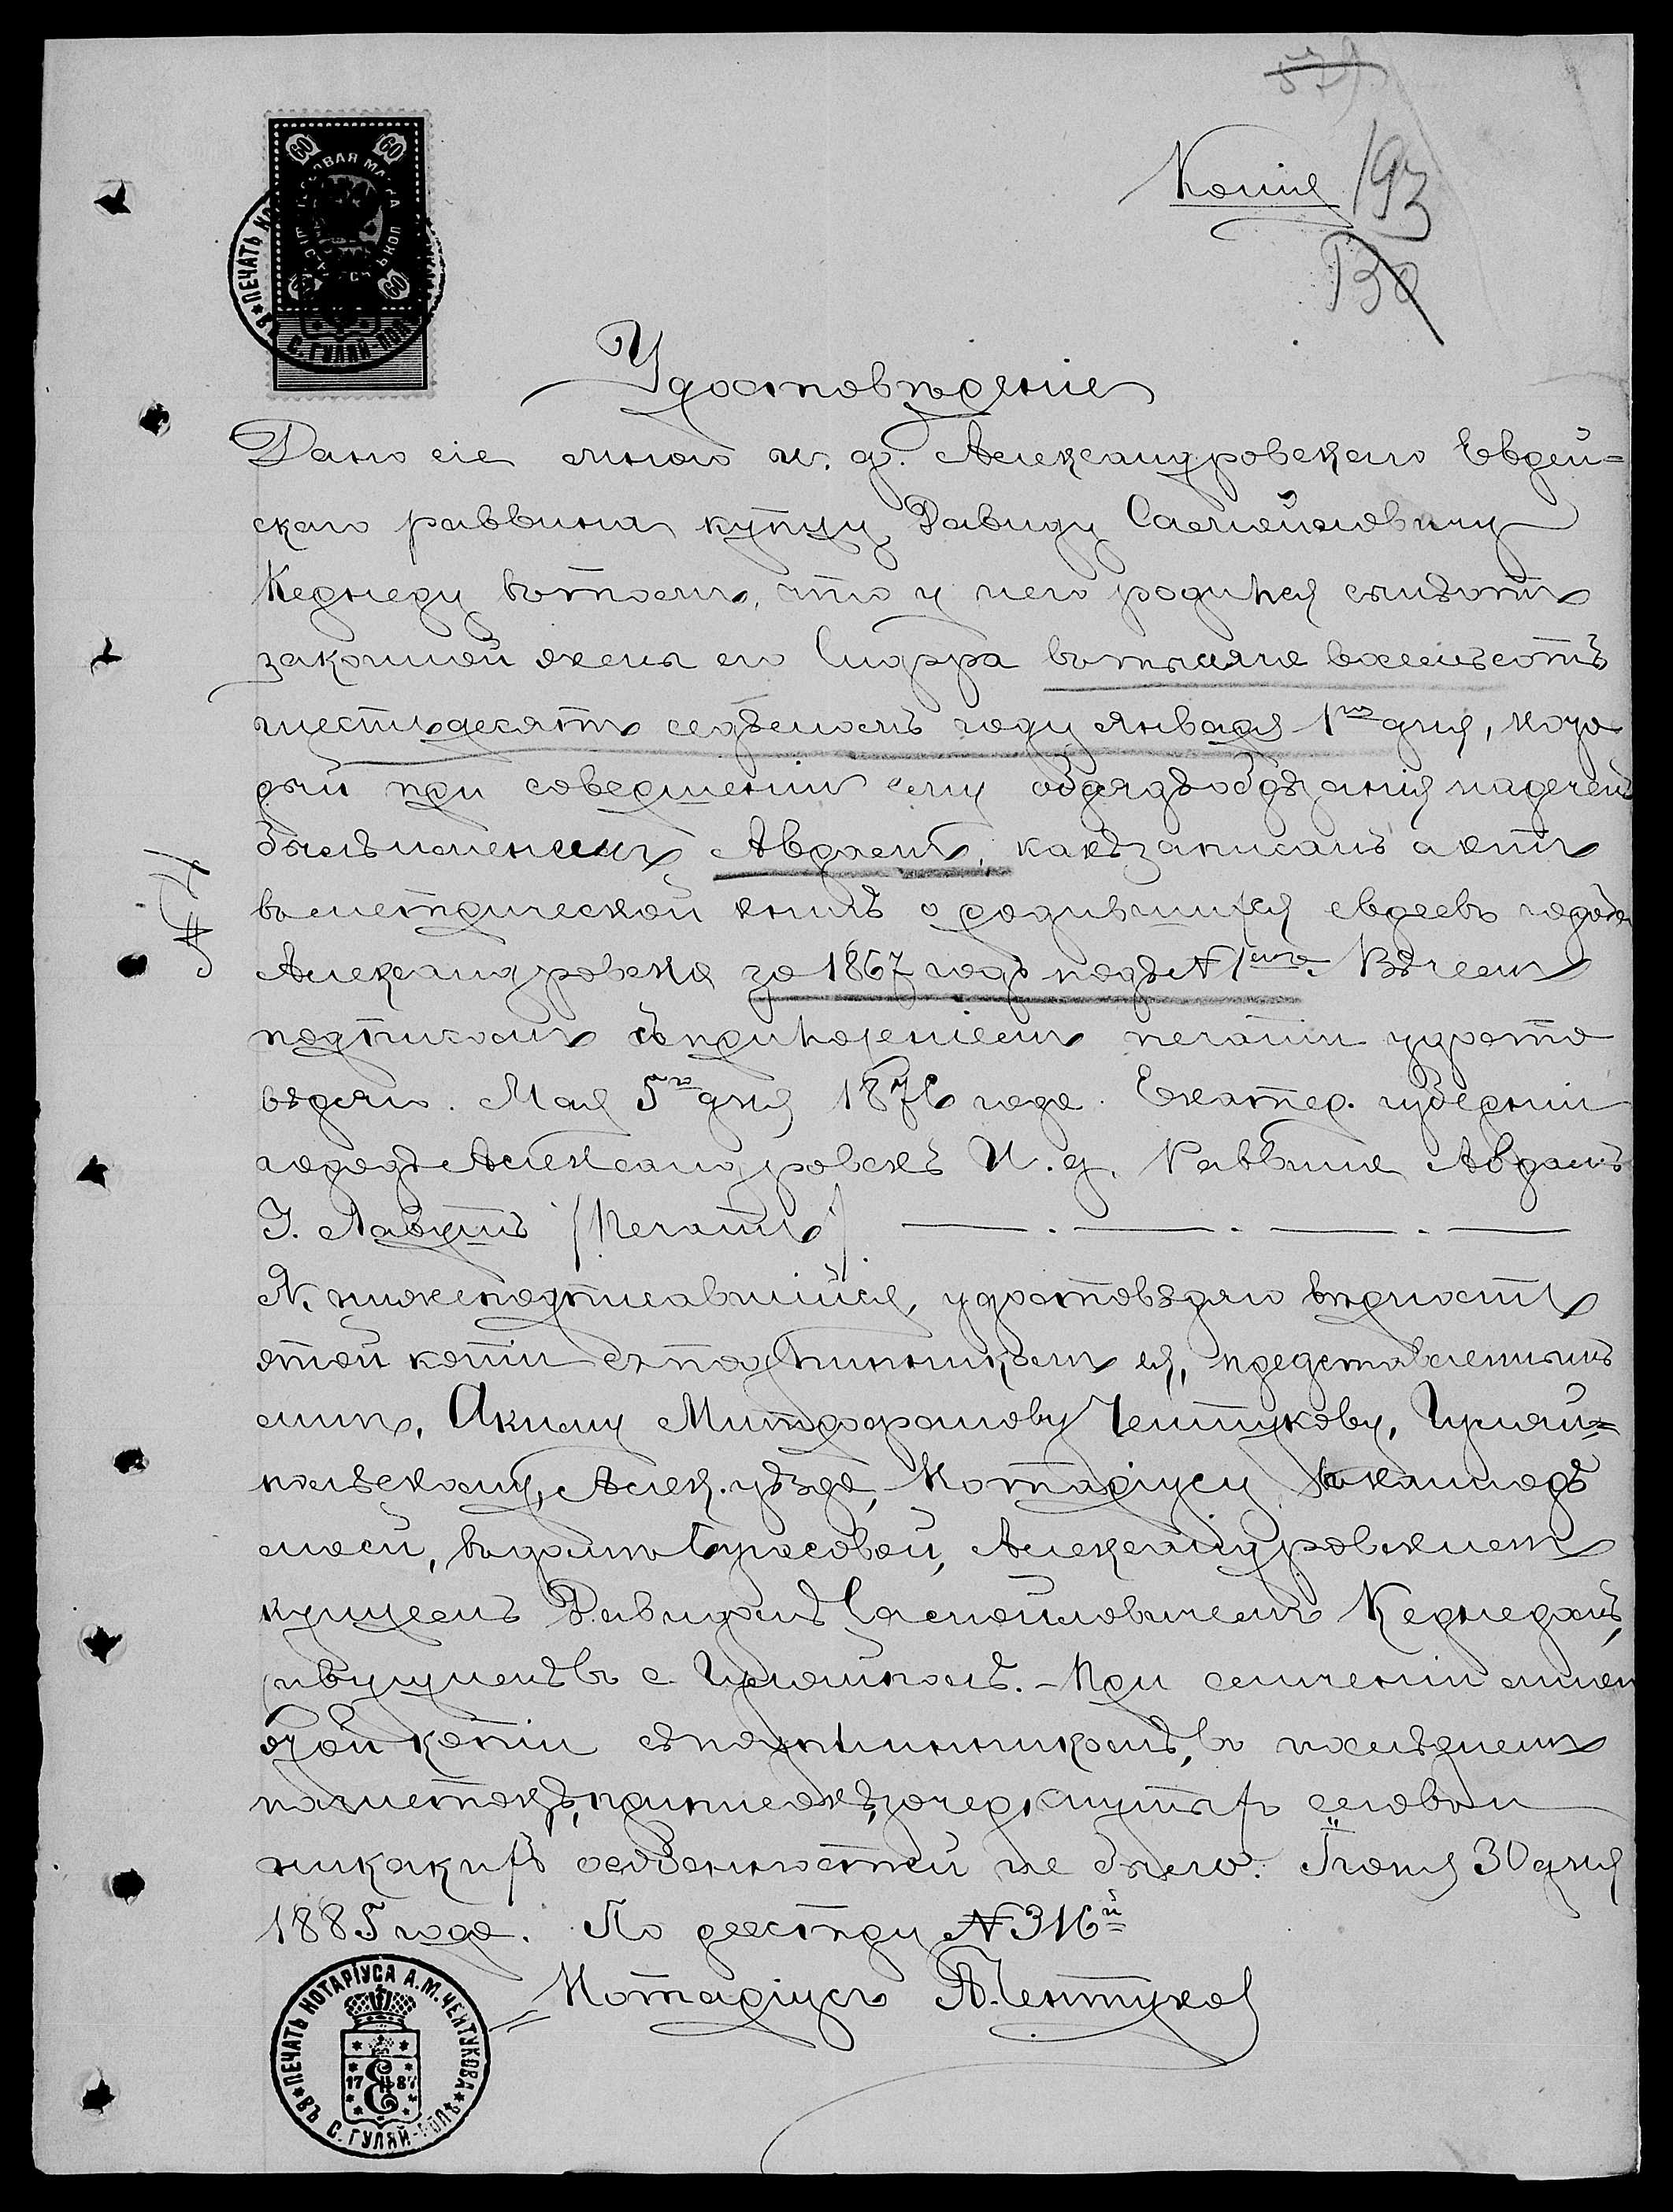 579
Копія 193
130
60 60
ГЕРБОВАЯ МАРКА
60 60
ПЕЧАТЬ НО
ВЪ С. ГУЛЯЙ-ПОЛ
Удостовѣреніе
Дано сіе мною и. д. Александровскаго Еврей=
скаго раввина купцу Давиду Самойловичу
Кернеру вътомъ, что у него родился сынъотъ
законной жены его Сидфра вътысяча восемьсотъ
шестьдесятъ седьмомъ году января 1го дня, кото
рый при совершеніи ему обрядъобрѣзанія нареченъ
былъименемъ Аврамъ, какъзаписанъ актъ
въметрической книгѣ о родившихся евреевъ города
Александровска за 1867 годъ подъ№ 1мъ. Въчемъ
подписомъ съприложеніемъ печати удосто
вѣряю. Мая 5го дня 1876 года. Екатер. губерніи
городъ Александровскъ И. д. Раввина Аврамъ
I. Лабунъ /Печать/
Я, нижеподписавшійся, удостовѣряю вѣрность
этой копіи съподлинникомъ ея, представленнымъ
мнѣ, Акиму Митрофанову Чентукову, Гуляй=
польскому, Алек. уѣзда, Нотаріусу, въканцеля
моей, въдомѣ Бурсовой, Александровскимъ
купцемъ Давидомъ Самойловичемъ Кернеромъ,
живущимъвъ с. Гуляйполѣ. – При сличеніи мною
этой копіи съподлинникомъ, въ послѣднемъ
помѣтокъ, приписокъ, зачеркнутыхъ словъ и
никакихъ особенностей не было. Іюня 30 дня
1885 года. По реестру № 316й
Нотаріусъ А. Чентуков
ПЕЧАТЬ НОТАРІУСА А.М. ЧЕНТУКОВА
ВЪ С. ГУЛЯЙ-ПОЛѢ
17 87